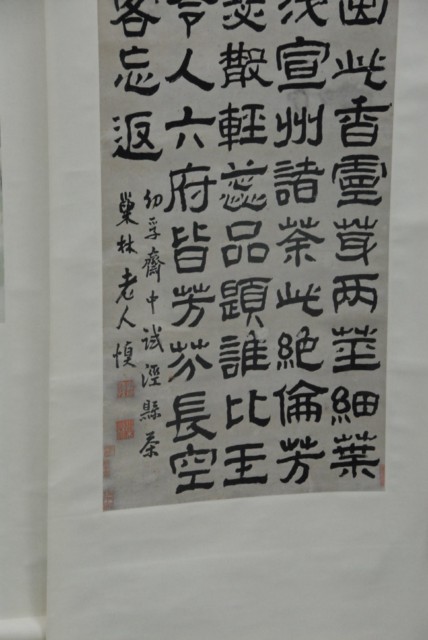 茁此香靈芽兩莖細葉
淺宣州諸茶此絕倫芳
瑟散輕蕊品題誰比玉
令人六府皆芳芬長空
客忘返
幼孚齋中試涇縣茶
巢林老人慎